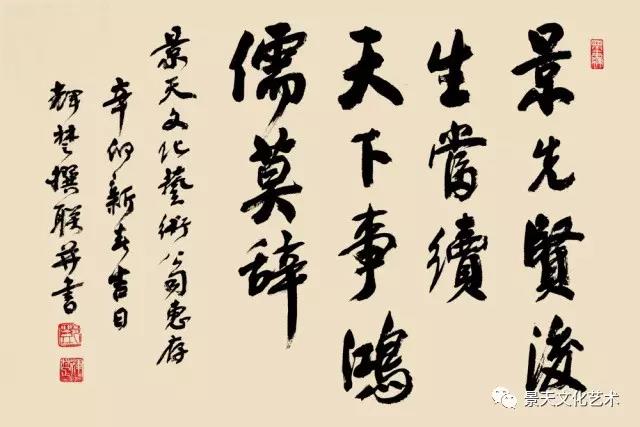 景先賢後
生當續
天下事鴻
儒莫辞
景天文化藝術公司惠存
辛卯新春吉日
輝楚撰联并書
景天文化艺术